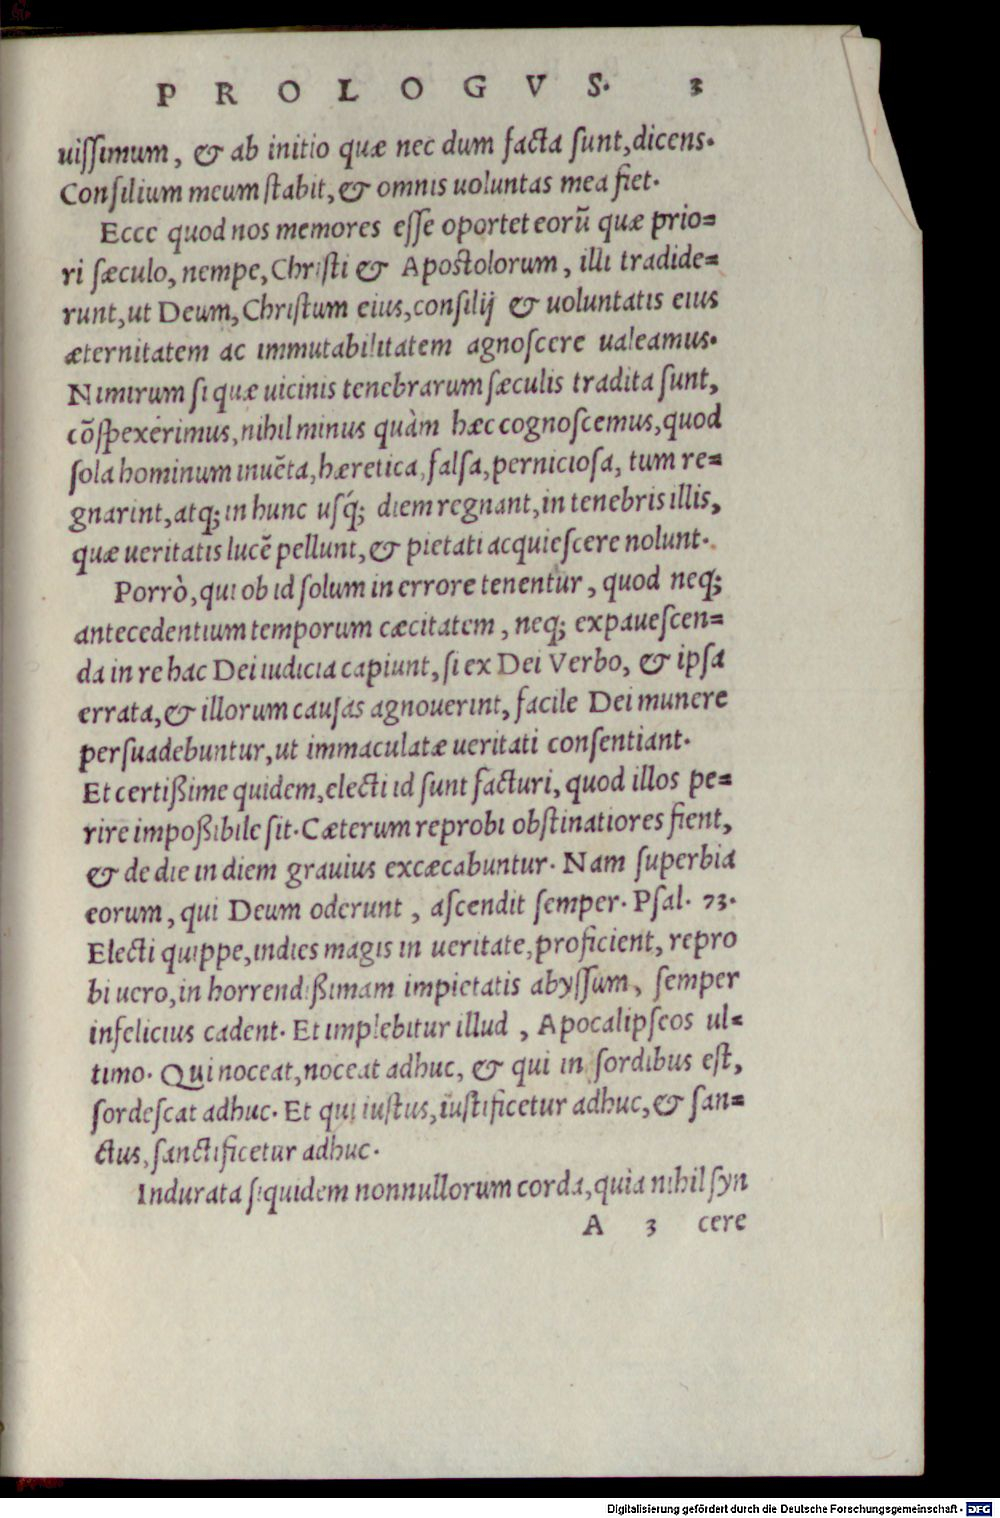 PROLOGVS. 3
uiſſimum, & ab initio quæ nec dum facta ſunt, dicens.
Conſilium meum ſtabit, & omnis uoluntas mea fiet.
Ecce quod nos memores eſſe oportet eorũ quæ prio=
ri ſæculo, nempe, Chriſti & Apoſtolorum, illi tradide=
runt, ut Deum, Chriſtum eius, conſilij & uoluntatis eius
æternitatem ac immutabilitatem agnoſcere ualeamus.
Nimirum ſi quæ uicinis tenebrarum ſæculis tradita ſunt,
cõſpexerimus, nihil minus quàm hæc cognoſcemus, quod
ſola hominum inuẽta, hæretica, falſa, pernicioſa, tum re=
gnarint, atq; in hunc uſq́; diem regnant, in tenebris illis,
quæ ueritatis lucẽ pellunt, & pietati acquieſcere nolunt.
Porrò, qui ob id ſolum in errore tenentur, quod neq;
antecedentium temporum cæcitatem, neq; expaueſcen=
da in re hac Dei iudicia capiunt, ſi ex Dei Verbo, & ipſa
errata, & illorum cauſas agnouerint, facile Dei munere
perſuadebuntur, ut immaculatæ ueritati conſentiant.
Et certißime quidem, electi id ſunt facturi, quod illos pe=
rire impoßibile ſit. Cæterum reprobi obſtinatiores fient,
& de die in diem grauius excæcabuntur. Nam ſuperbia
eorum, qui Deum oderunt, aſcendit ſemper. Pſal. 73.
Electi quippe, indies magis in ueritate, proficient, repro
bi uero, in horrendißimam impietatis abyſſum, ſemper
infelicius cadent. Et implebitur illud, Apocalipſeos ul=
timo. Qui noceat, noceat adhuc, & qui in ſordibus eſt,
ſordeſcat adhuc. Et qui iuſtus, iuſtificetur adhuc, & ſan=
ctus, ſanctificetur adhuc.
Indurata ſiquidem nonnullorum corda, quia nihil ſyn
A 3 cere
Digitalisierung gefördert durch die Deutsche Forschungsgemeinschaft - DFG